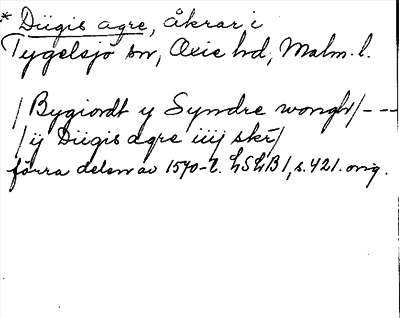 * Diigis agre, Åkrar i
Tygelsjö sn, Oxie hd, Malm. l.
/ Bygiordt y Syndre wongh / ---
/ ij Diigis agre iiij skr /
förra delen av 1570-t. LSLB 1, s. 421. orig.